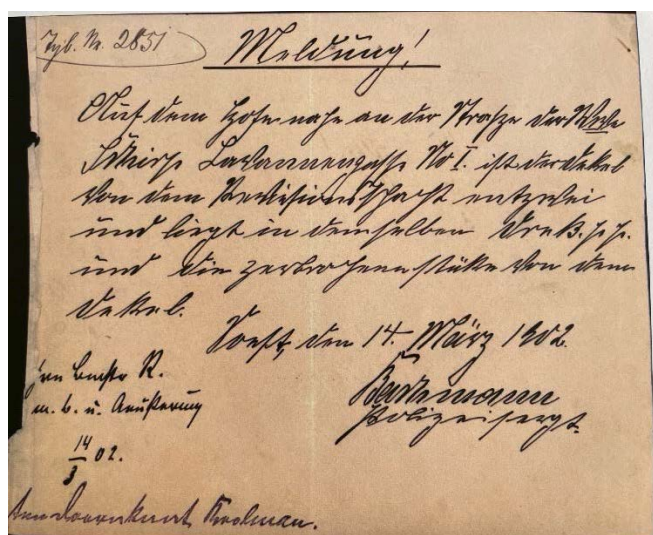 Tgb. Nr. 2851
Meldung!
Auf dem Hofe nahe an der Straße der Wwe
Lavannengasse No I. ist der Dekel
von dem Revisionsschacht entzwei
und liegt in demselben Drek
und die zerbrochenn stüke von dem
Dekel.
Soest, den 14. März 1902.
Polizeisergt.
R.
m. b. u. Aeußerung
14/3 02.